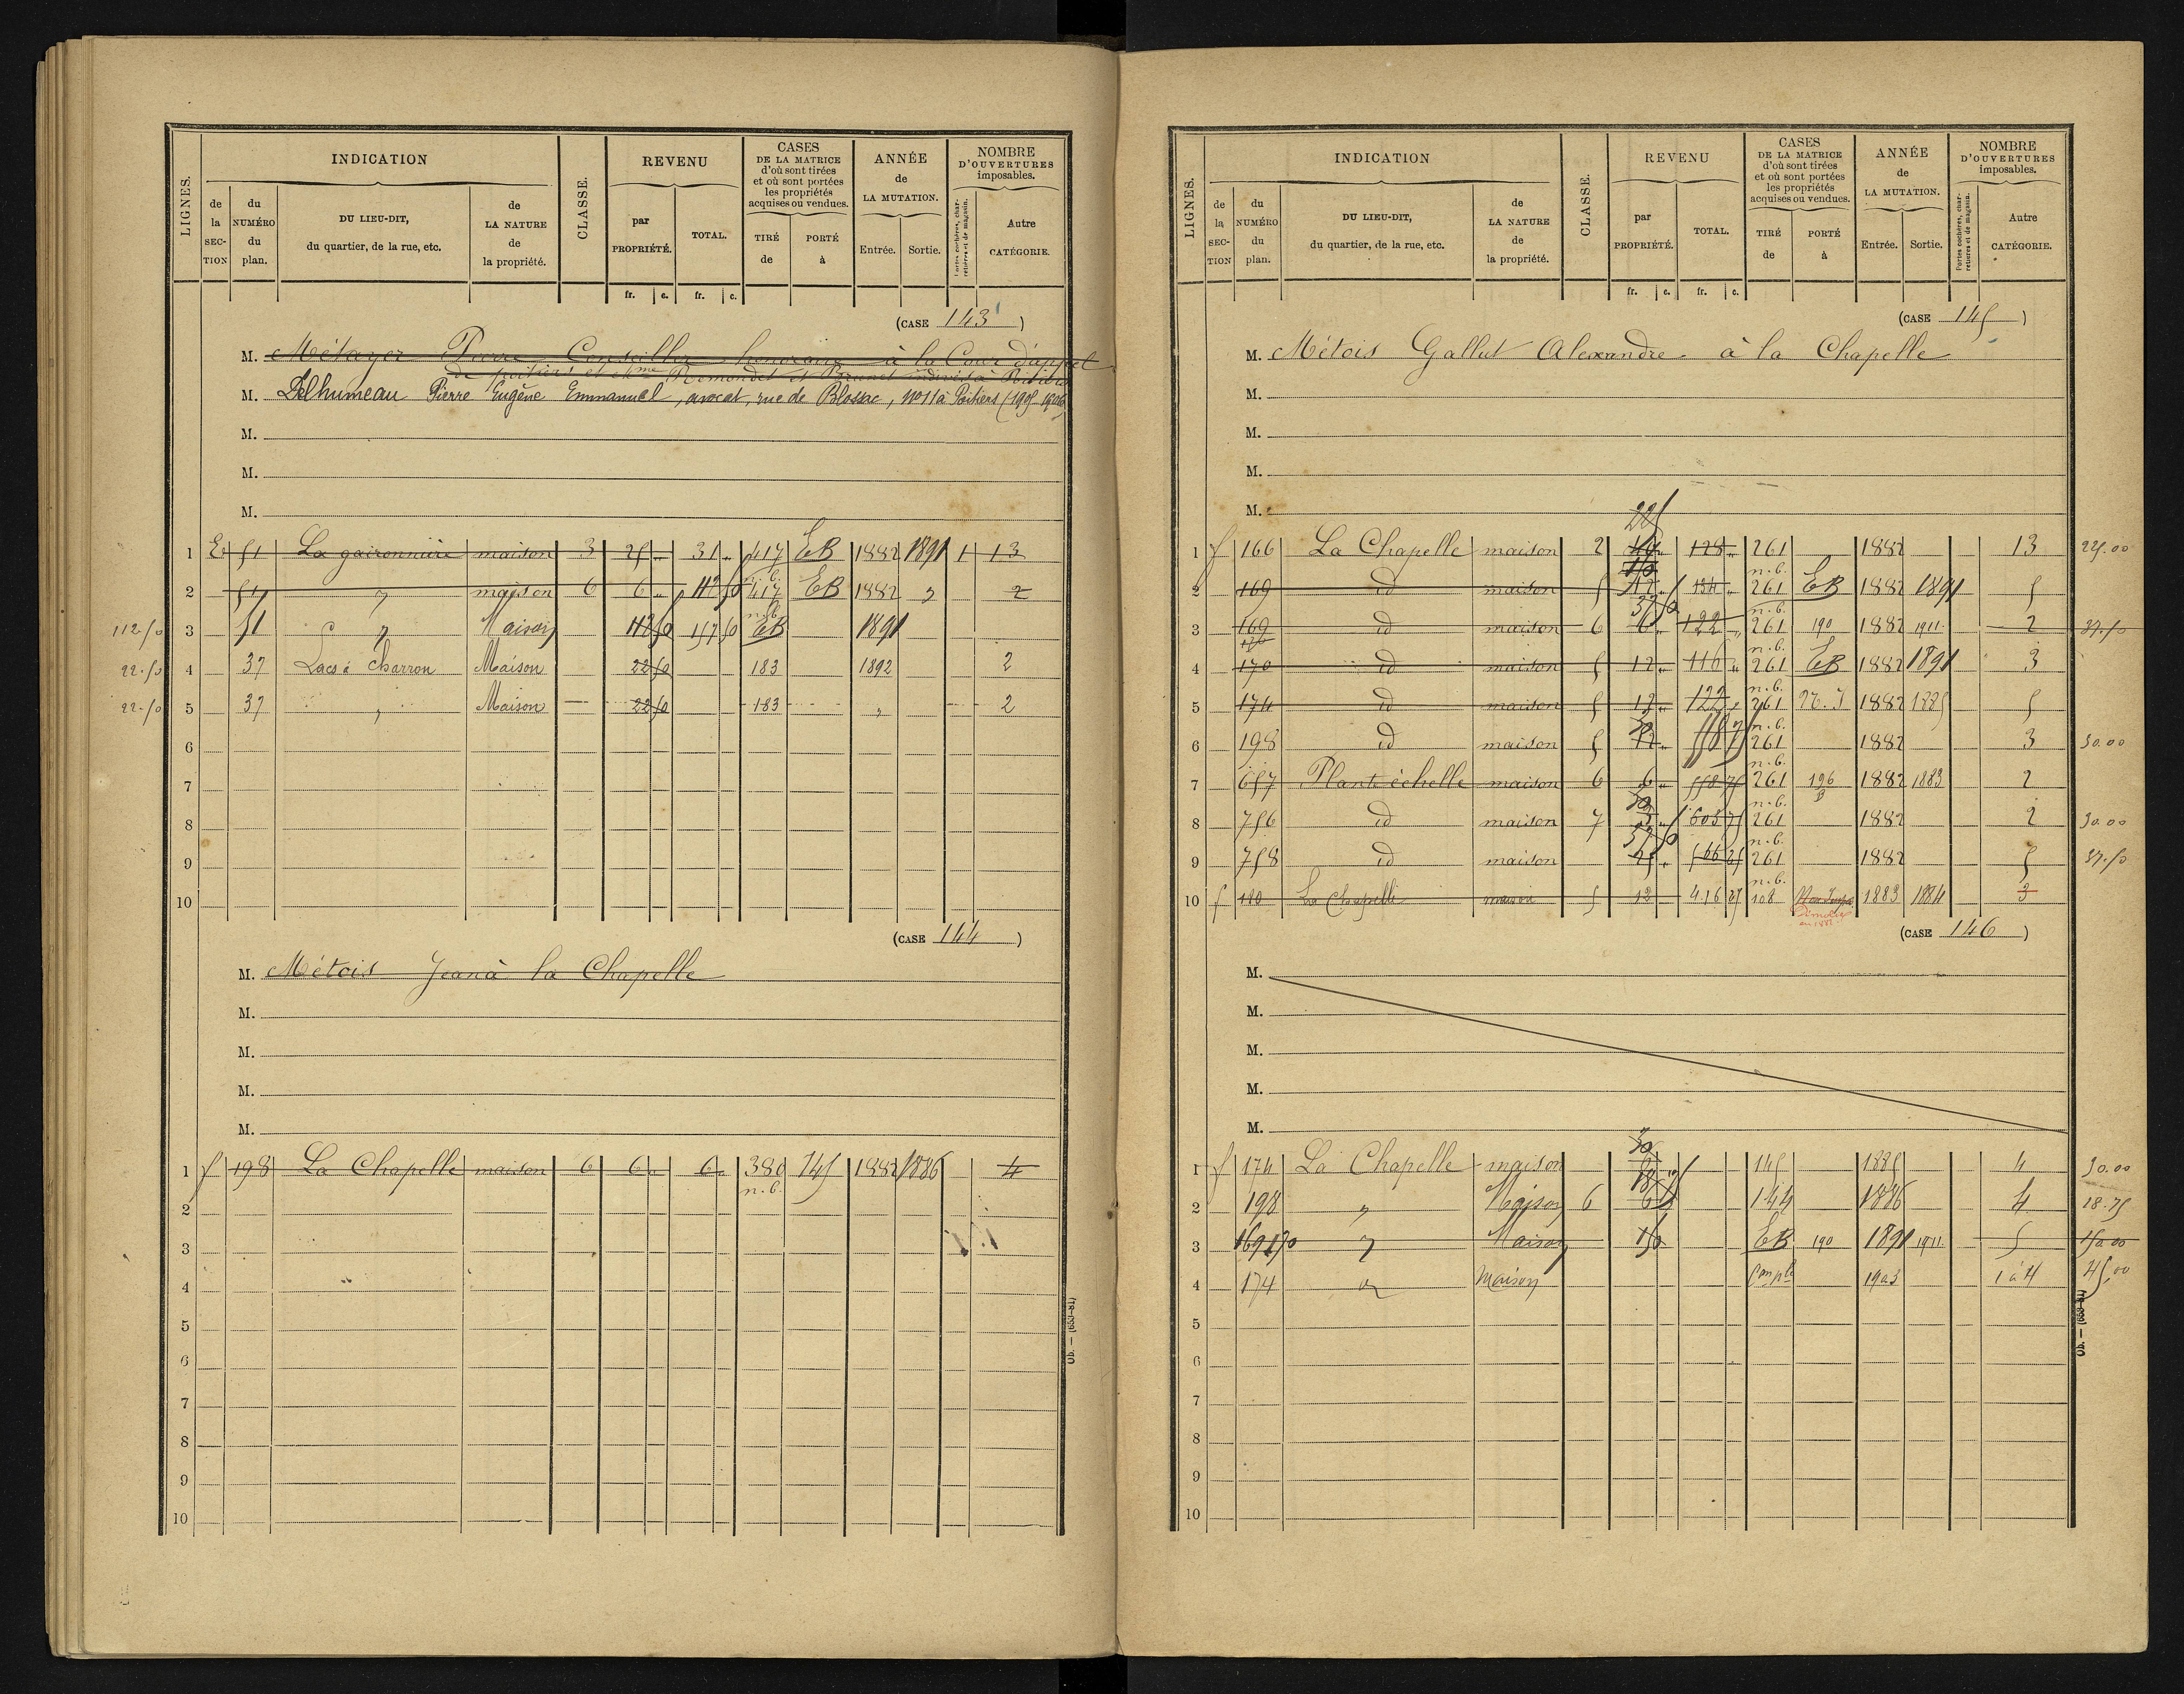 LIGNES.
INDICATION
de la SECTION
du NUMÉRO du plan.
DU LIEU-DIT, du quartier, de la rue, etc.
de LA NATURE de la propriété.
CLASSE.
REVENU
par PROPRIÉTÉ.
TOTAL.
CASES DE LA MATRICE d'où sont tirées et où sont portées les propriétés acquises ou vendues.
TIRÉ de
PORTÉ à
ANNÉE de LA MUTATION.
Entrée.
Sortie.
NOMBRE D'OUVERTURES imposables.
Portes cochères, charretières et de magasin.
Autre CATÉGORIE.
fr. c. fr. c.
(CASE 143)
M. Métayer Pierre Conseiller honoraire à la Cour d'appel
de poitiers et Mme Remondet et Brunet indivis à Poitiers
M. Delhumeau Pierre Eugène Emmanuel, avocat, rue de Blossac, no 11 à Poitiers (1905 1906)
M.
M.
M.
1 E 51 La gaironnière maison 3 25 " 31 " 417 EB 1882 1891 1 13
2 51 " maison 6 6 " 112 50 n.b. 417 EB 1882 " 2
112.50 3 51 " Maison 112 50 157 50 EB 1891
22.50 4 37 Lacs à Charron Maison 22 50 183 1892 2
22.50 5 37 " Maison 22 50 183 " 2
6
7
8
9
10
(CASE 144)
M. Métois Jean à la Chapelle
M.
M.
M.
M.
1 f 198 La Chapelle maison 6 6 " 6 " 386 145 1882 1886 4
n.b.
2
3
4
5
6
7
8
9
10
Ob. — (659-81)
LIGNES.
INDICATION
de la SECTION
du NUMÉRO du plan.
DU LIEU-DIT, du quartier, de la rue, etc.
de LA NATURE de la propriété.
CLASSE.
REVENU
par PROPRIÉTÉ.
TOTAL.
CASES DE LA MATRICE d'où sont tirées et où sont portées les propriétés acquises ou vendues.
TIRÉ de
PORTÉ à
ANNÉE de LA MUTATION.
Entrée.
Sortie.
NOMBRE D'OUVERTURES imposables.
Portes cochères, charretières et de magasin.
Autre CATÉGORIE.
fr. c. fr. c.
(CASE 145)
M. Métois Gallut Alexandre à la Chapelle
M.
M.
M.
M.
225
1 f 166 La Chapelle maison 2 128 " 261 1882 13 225.00
2 169 id maison 5 12 " 134 " n.b. 261 EB 1882 1891 5
37 50
3 169 id maison 6 6 " 122 " n.b. 261 190 1882 1911 2 37.50
4 170 id maison 5 12 " 116 " n.b. 261 EB 1882 1891 3
5 174 id maison 5 12 " 122 " n.b. 261 1882 1885 5
30
6 198 id maison 5 12 " n.b. 261 1882 3 30.00
7 657 Plante échelle maison 6 6 " 558 75 n.b. 261 196 1882 1883 2
30
8 756 id maison 7 603 75 n.b. 261 1882 2 30.00
37 50
9 758 id maison 566 25 n.b. 261 1882 5 37.50
10 f 180 La Chapelle maison 5 12 416 25 n.b. 108 1883 1884 3
(CASE 146)
M.
M.
M.
M.
M.
30
1 f 174 La Chapelle maison 145 1885 4 30.00
18 75
2 198 " Maison 6 6 144 1886 4 18.75
3 169 170 " Maison 150 EB 190 1891 1911 5 150.00
4 174 " Maison 1903 1 à 4 45,00
5
6
7
8
9
10
Ob. — (659-81)